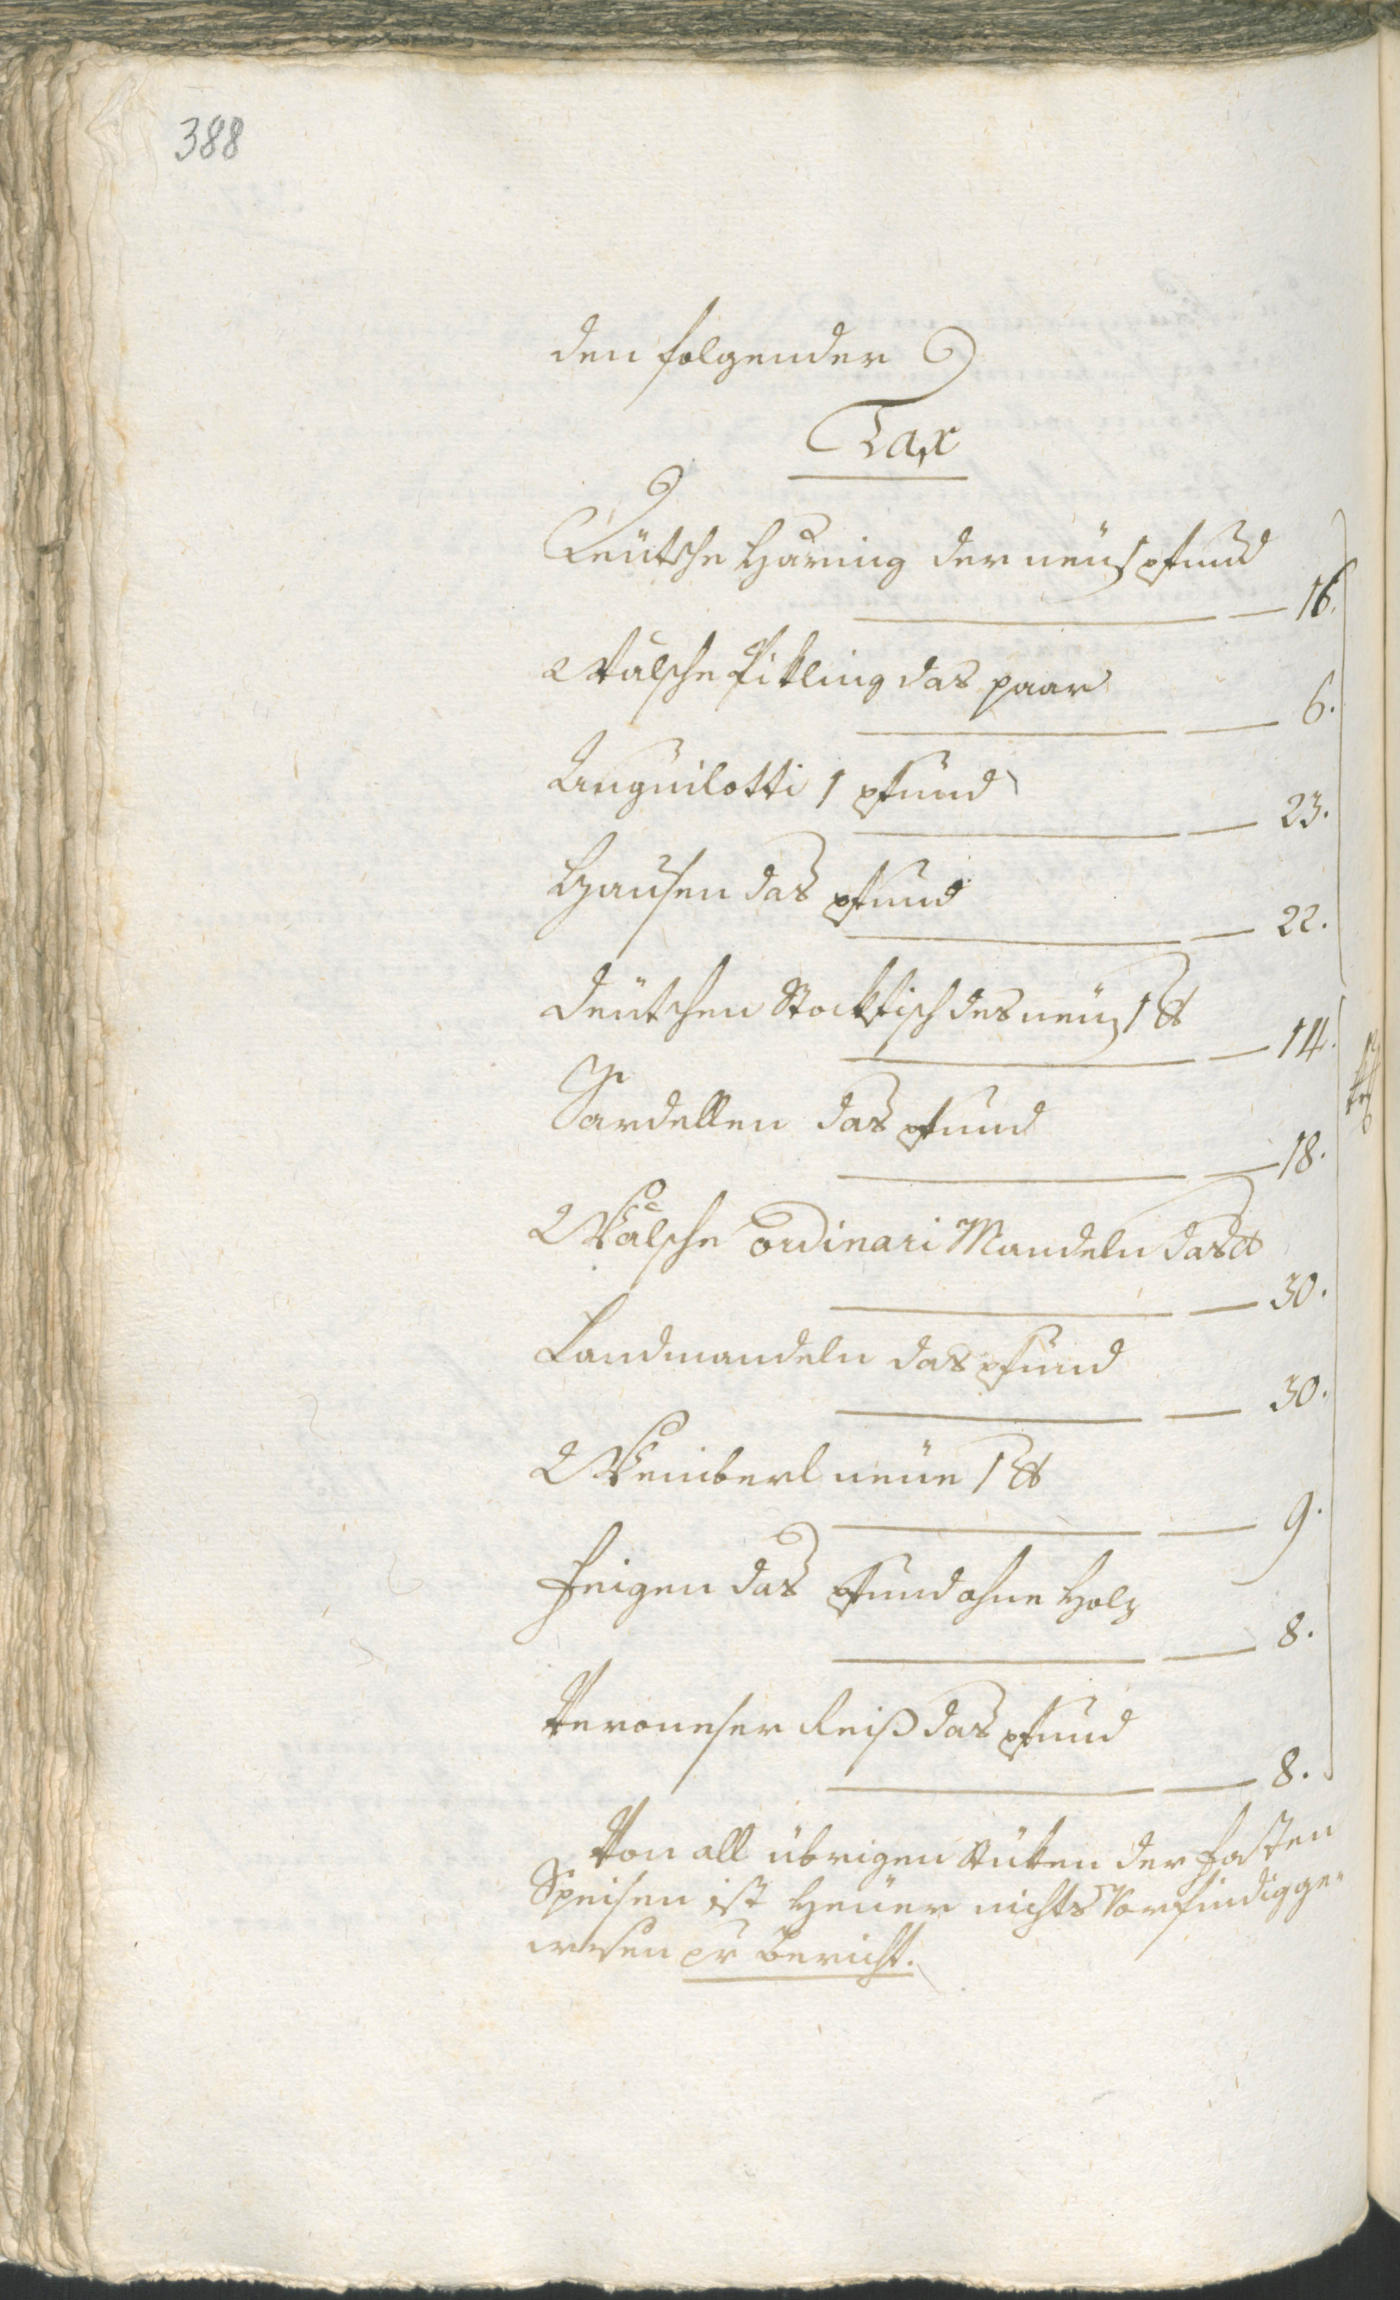 388
den folgender
Tax
Teütsche Häring der neüs 1 pfund
16.
Wälsche Pikling das paar
6.
Anguilotti 1 pfund
23.
Hausen das pfund
22.
deütschen Stockfisch des neüs 1 ℔
14.
Sardellen das pfund
18.
kr
Wälsche ordinari Mandeln das ℔
30.
Landmandeln das pfund
30.
Weinberl neüe 1 ℔
9.
Feigen das pfund ohne Holz
8.
Veroneser Reiß das pfund
8.
Von all übrigen Stüken der Fasten
Speisen ist heüer nichts Vorfindig ge-
wesen pr bericht.